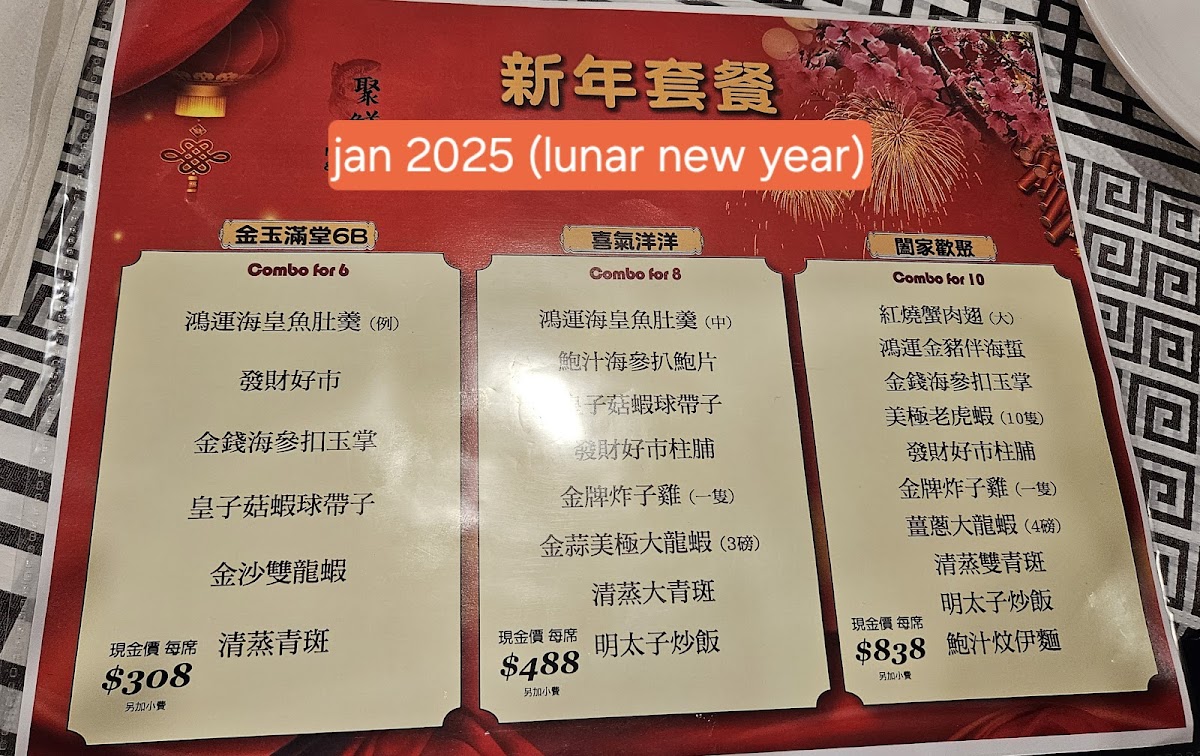 聚
新年套餐
jan 2025 (lunar new year)
金玉滿堂6B
Combo for 6
鴻運海皇魚肚羹 (例)
發財好市
金錢海參扣玉掌
皇子菇蝦球帶子
金沙雙龍蝦
清蒸青斑
現金價 每席
$308
另加小費
喜氣洋洋
Combo for 8
鴻運海皇魚肚羹 (中)
鮑汁海參扒鮑片
子菇蝦球帶子
發財好市柱脯
金牌炸子雞 (一隻)
金蒜美極大龍蝦 (3磅)
清蒸大青斑
明太子炒飯
現金價 每席
$488
另加小費
闔家歡聚
Combo for 10
紅燒蟹肉翅 (大)
鴻運金豬伴海蜇
金錢海參扣玉掌
美極老虎蝦 (10隻)
發財好市柱脯
金牌炸子雞 (一隻)
薑蔥大龍蝦 (4磅)
清蒸雙青斑
明太子炒飯
鮑汁炆伊麵
現金價 每席
$838
另加小費